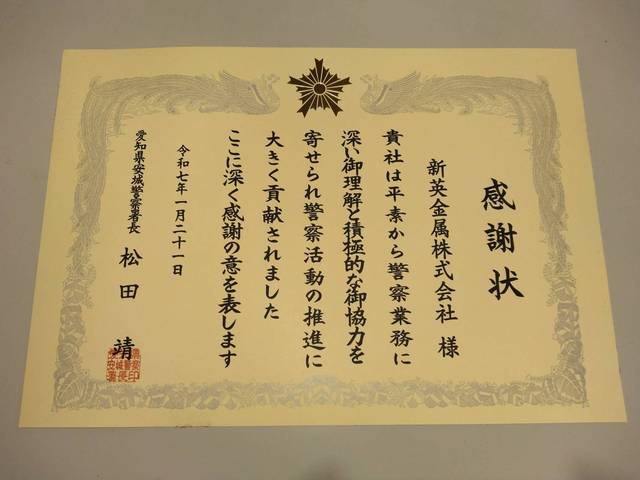 感謝状
新英金属株式会社 様
貴社は平素から警察業務に
深い御理解と積極的な御協力を
寄せられ警察活動の推進に
大きく貢献されました
ここに深く感謝の意を表します
令和七年一月二十一日
愛知県安城警察署長 松田 靖